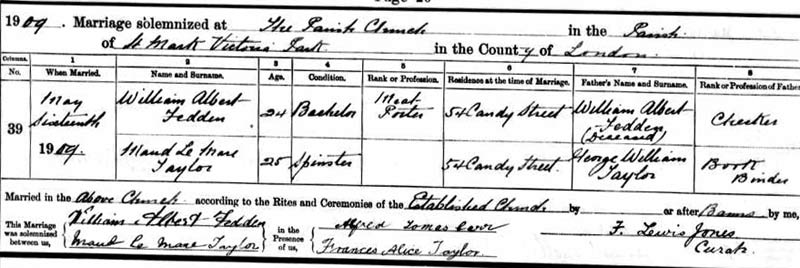 Page 20
1909. Marriage solemnized at The Parish Church in the Parish
of St Mark Victoria Park in the County of London
Columns. 1 2 3 4 5 6 7 8
No. When Married. Name and Surname. Age. Condition. Rank or Profession. Residence at the time of Marriage. Father's Name and Surname. Rank or Profession of Father
39 May Sixteenth 1909. William Albert Fedden 24 Bachelor Meat Porter 54 Candy Street William Albert Fedden (Deceased) Checker
Maud Le Mare Taylor 25 Spinster 54 Candy Street. George William Taylor Book Binder
Married in the Above Church according to the Rites and Ceremonies of the Established Church by or after Banns by me,
This Marriage was solemnized between us, William Albert Fedden Maud Le Mare Taylor in the Presence of us, Alfred Carr Frances Alice Taylor. F. Lewis Jones Curate